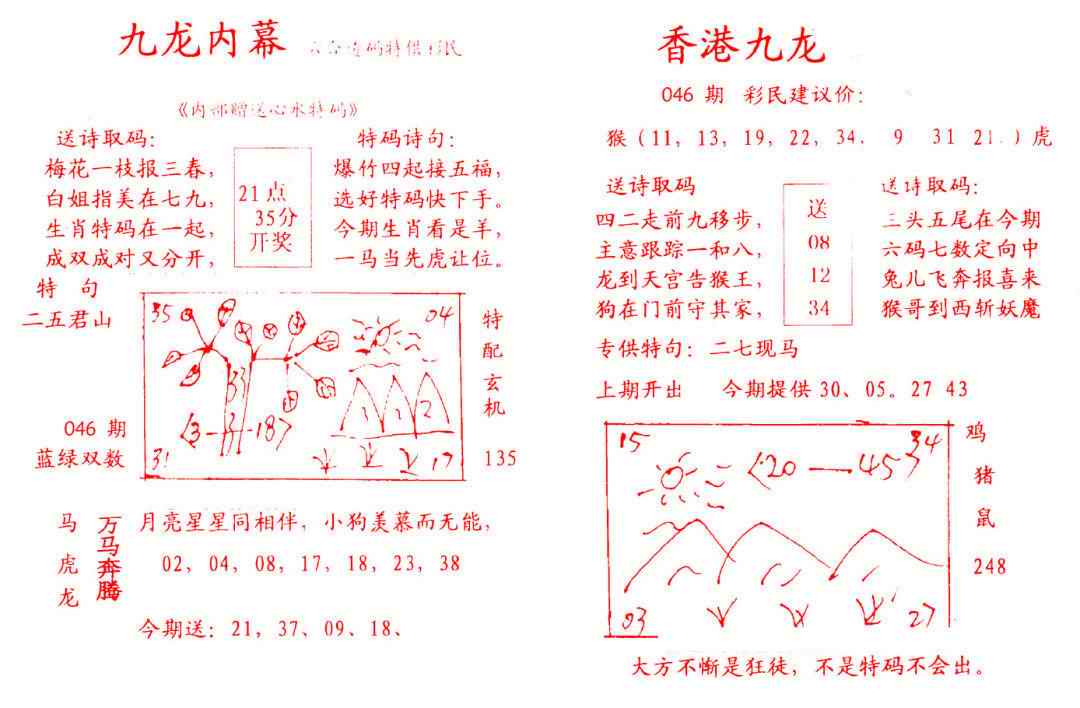 九龙内幕
码特供 民
《内部赠送心水特码》
送诗取码：
梅花一枝报三春，
白姐指美在七九，
生肖特码在一起，
成双成对又分开，
21点
35分
开奖
特码诗句：
爆竹四起接五福，
选好特码快下手。
今期生肖看是羊，
一马当先虎让位。
特 句
二五君山
046 期
蓝绿双数
35
04
33
1 1 2
31
17
特配玄机
135
马虎龙
万马奔腾
月亮星星同相伴，小狗羡慕而无能，
02，04，08，17，18，23，38
今期送：21，37、09、18、
香港九龙
046 期 彩民建议价：
猴（11，13，19，22，34. 9 31 21.）虎
送诗取码
四二走前九移步，
主意跟踪一和八，
龙到天宫告猴王，
狗在门前守其家，
送
08
12
34
送诗取码：
三头五尾在今期
六码七数定向中
兔儿飞奔报喜来
猴哥到西斩妖魔
专供特句：二七现马
上期开出 今期提供 30、05。27 43
15
34
20—45
03
27
鸡
猪
鼠
248
大方不惭是狂徒，不是特码不会出。